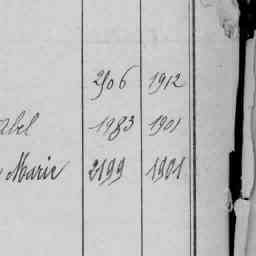 2906 1912
abel 1983 1901
Marie 2199 1901